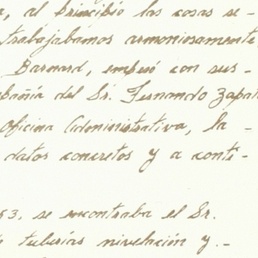 a, al principio las cosas se-
trabajabamos armoniosamente,
Barnard, empezó con sus
pañia del Sr. Fernando Zapat
Oficina Administrativa, la-
datos concretos y a conti-
53, se encontraba el Sr.
tuberias nivelación y.-